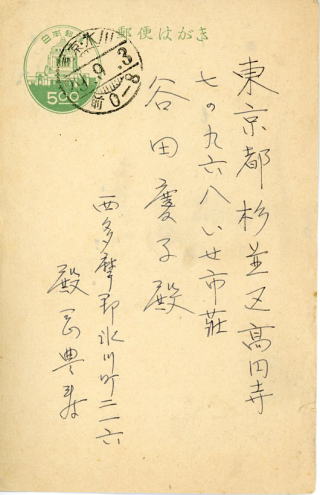 郵便はがき
日本郵便
500
東京 氷川
9.3
前0-8
東京都杉並区高円寺
七の九六八いせ市荘
谷田慶子殿
西多摩郡氷川町二一六
殿岡豊寿